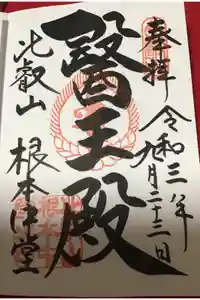 奉拝
令和三年九月二十三日
醫王殿
比叡山
根本中堂